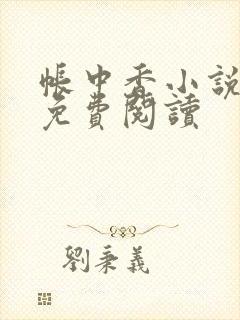 帳中香小說
免費閱讀
劉秉義